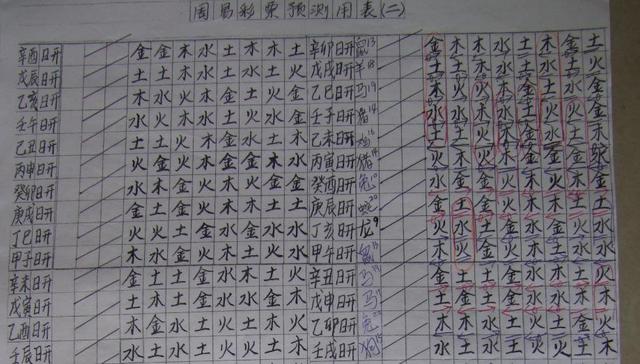 周易彩票预测用表(二)
辛酉日开 金金木水土木木土 辛卯日开 鼠13 金木木水土木金土
戊辰日开 土土木水土水土火 戊戌日开 羊18 土土水土土火
乙亥日开 木水火木金土火金 乙巳日开 马19 木火木金土火金
壬午日开 水火木水土水火金 壬子日开 猪14 水木水火火金
乙丑日开 土土火木金水土木 乙未日开 鸡16 土火木金水土木
丙申日开 火金火木金金木水 丙寅日开 猪 火木火金木
癸卯日开 水木金火木火金金 癸酉日开 兔10 水金金火木火金金
庚戌日开 金土金火木木土土 庚辰日开 蛇20 金土金火木木土土
丁巳日开 火火土金水水金水 丁亥日开 龙9 火水土金水水金水
甲子日开 木水金火木土火水 甲午日开 鼠 木火金火木土水水
辛未日开 金土土金水木土火 辛丑日开 马 金土土金水木土火
戊寅日开 土木土水水金金木 戊申日开 马 土金土水水金木
乙酉日开 木金水土火火土水 乙卯日开 兔 木木水土火火土水
壬辰日开 水土水水金土火木 壬戌日开 狗 水土水水金土火木